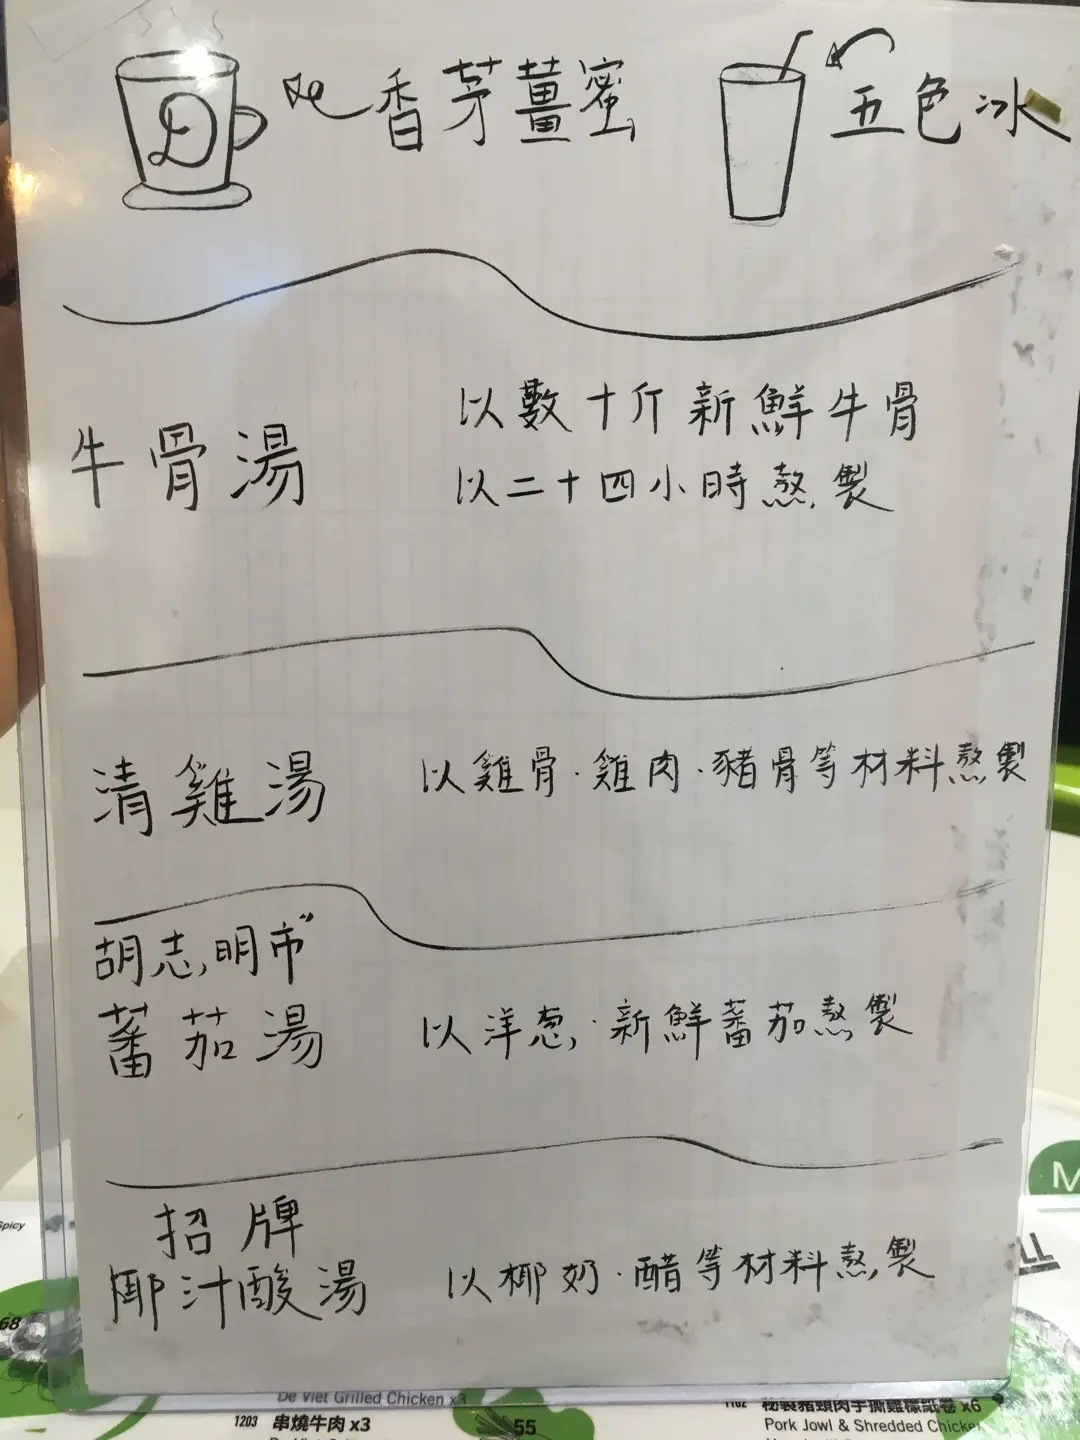 D 香茅薑蜜
五色冰
牛骨湯
以數十斤新鮮牛骨
以二十四小時熬製
清雞湯
以雞骨．雞肉．豬骨等材料熬製
胡志明市"
蕃茄湯
以洋葱．新鮮蕃茄熬製
招牌
椰汁酸湯
以椰奶．醋等材料熬製
Spicy
68
M
De Viet Grilled Chicken x3
1203 串燒牛肉 x3
55
1102 秘製豬頸肉手撕雞檬紙卷 x6
Pork Jowl & Shredded Chicken